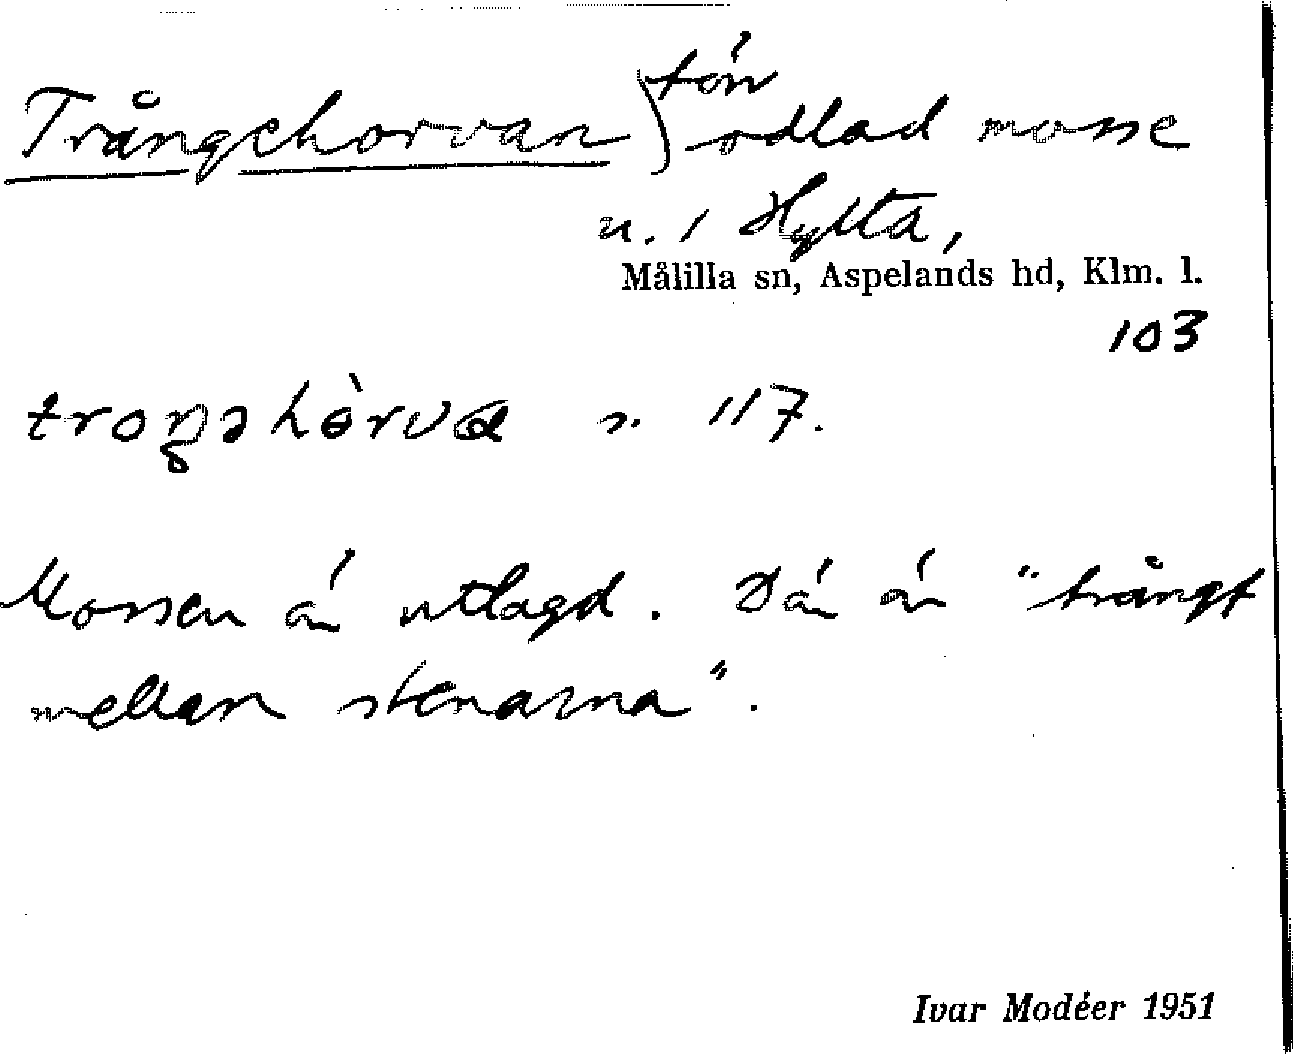 Trångehorvan) förr odlad mosse
u. 1 Hylta,
Målilla sn, Aspelands hd, Klm. l.
103
troŋəhòrva s. 117.
Mossen är utlagd. Där är "trångt
mellan stenarna".
Ivar Modéer 1951